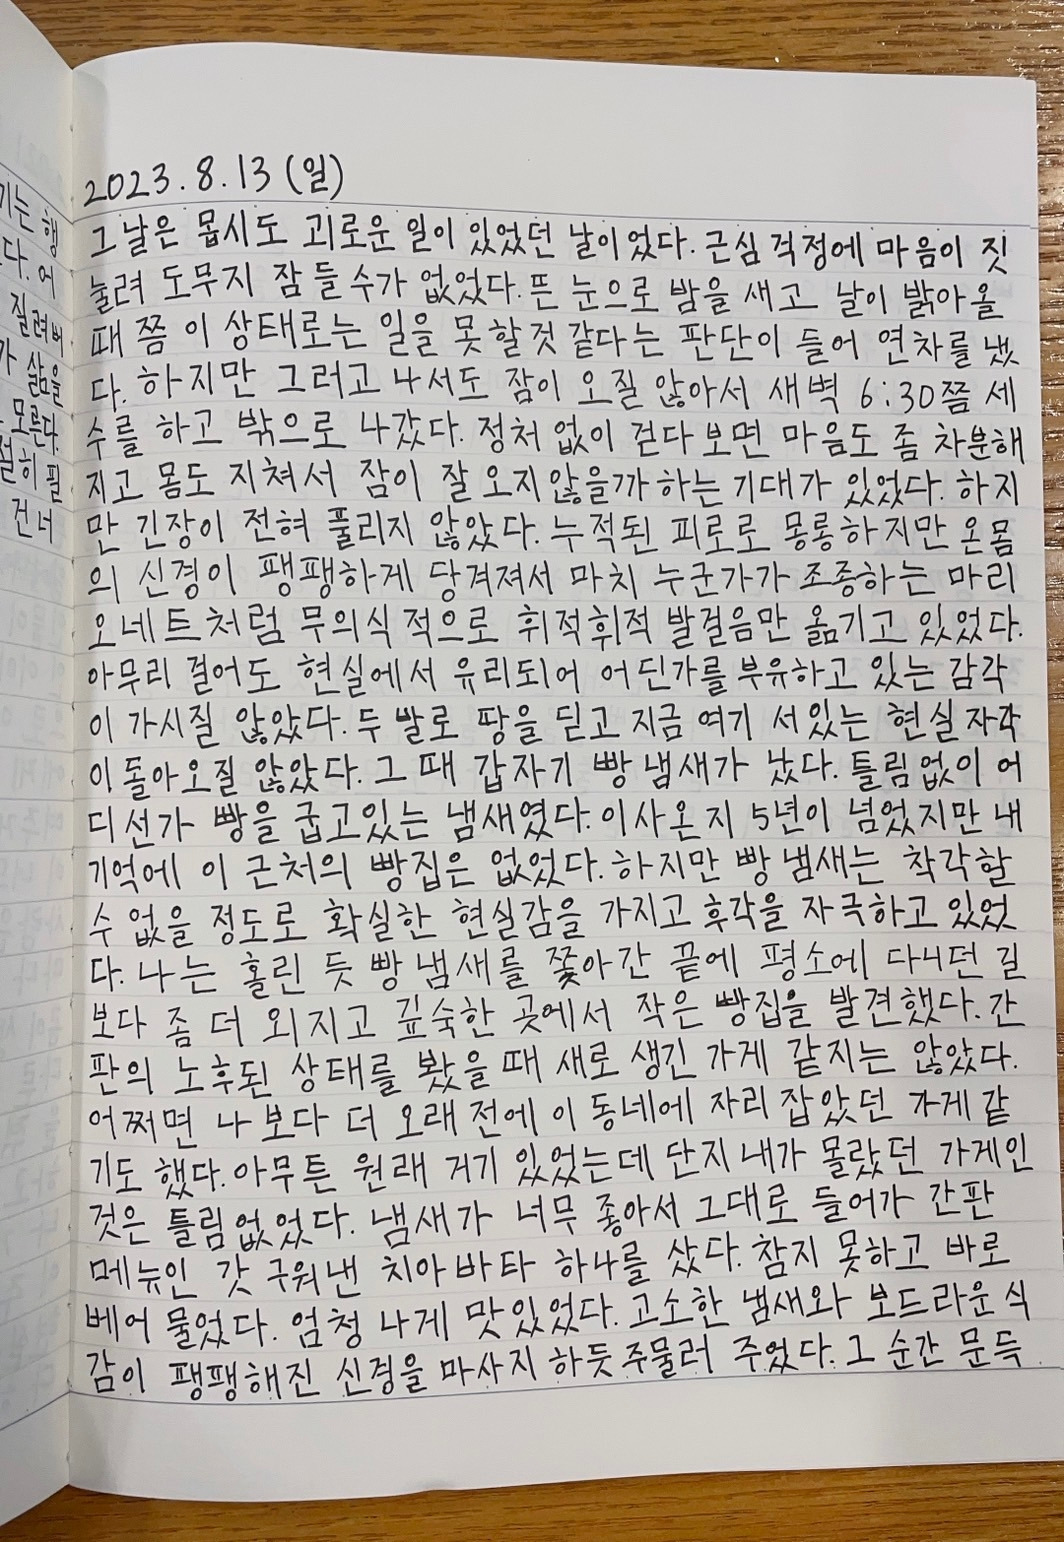 기는 행
다. 어
질려버
가 삶을
모른다.
절히 필
건너
2023.8.13 (일)
그날은 몹시도 괴로운 일이 있었던 날이었다. 근심 걱정에 마음이 짓
눌려 도무지 잠 들 수가 없었다. 뜬 눈으로 밤을 새고 날이 밝아올
때 쯤 이 상태로는 일을 못 할것 같다는 판단이 들어 연차를 냈
다. 하지만 그러고 나서도 잠이 오질 않아서 새벽 6:30쯤 세
수를 하고 밖으로 나갔다. 정처 없이 걷다보면 마음도 좀 차분해
지고 몸도 지쳐서 잠이 잘 오지않을까 하는 기대가 있었다. 하지
만 긴장이 전혀 풀리지 않았다. 누적된 피로로 몽롱하지만 온몸
의 신경이 팽팽하게 당겨져서 마치 누군가가 조종하는 마리
오네트처럼 무의식적으로 휘적휘적 발걸음만 옮기고 있었다.
아무리 걸어도 현실에서 유리되어 어딘가를 부유하고 있는 감각
이 가시질 않았다. 두 발로 땅을 딛고 지금 여기 서있는 현실 자각
이 돌아오질 않았다. 그 때 갑자기 빵 냄새가 났다. 틀림없이 어
디선가 빵을 굽고있는 냄새였다. 이사온지 5년이 넘었지만 내
기억에 이 근처의 빵집은 없었다. 하지만 빵 냄새는 착각할
수 없을 정도로 확실한 현실감을 가지고 후각을 자극하고 있었
다. 나는 홀린 듯 빵 냄새를 쫓아간 끝에 평소에 다니던 길
보다 좀 더 외지고 깊숙한 곳에서 작은 빵집을 발견했다. 간
판의 노후된 상태를 봤을 때 새로 생긴 가게 같지는 않았다.
어쩌면 나 보다 더 오래 전에 이 동네에 자리 잡았던 가게 같
기도 했다. 아무튼 원래 거기 있었는데 단지 내가 몰랐던 가게인
것은 틀림없었다. 냄새가 너무 좋아서 그대로 들어가 간판
메뉴인 갓 구워낸 치아바타 하나를 샀다. 참지 못하고 바로
베어 물었다. 엄청 나게 맛있었다. 고소한 냄새와 보드라운 식
감이 팽팽해진 신경을 마사지 하듯 주물러 주었다. 그 순간 문득